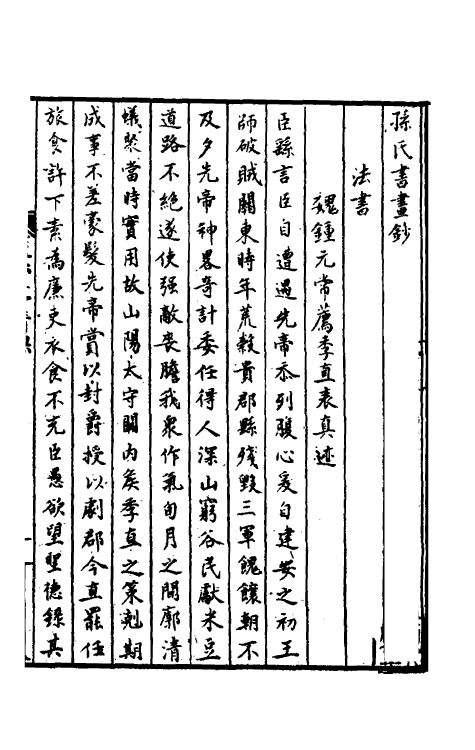 孫氏書畫鈔
法書
魏鍾元常薦季直表真迹
臣繇言臣自遭遇先帝忝列腹心爰自建安之初王
師破賊關東時年荒穀貴郡縣殘毀三軍餽饟朝不
及夕先帝神畧奇計委任得人深山窮谷民獻米豆
道路不絕遂使强敵喪膽我衆作氣旬月之間廓清
蟻聚當時實用故山陽太守關内矦季直之策剋期
成事不差豪髮先帝賞以封爵授以劇郡今直罷任
旅食許下素爲廉吏衣食不充臣愚欲望聖德錄其